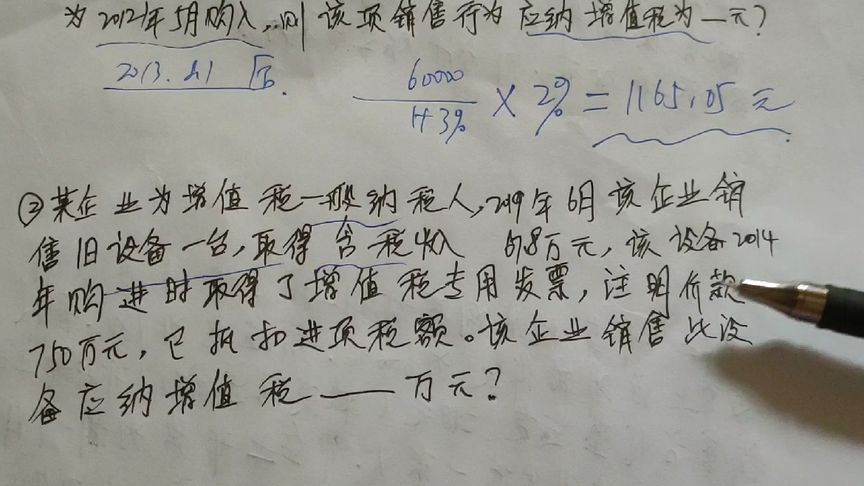 为2012年5月购入,则该项销售行为应纳增值税为一元?
2013.8.1 后.
60000
1+3% × 2% = 1165.05元
②某企业为增值税一般纳税人,2019年6月该企业销
售旧设备一台,取得含税收入 67.8万元,该设备2014
年购进时取得了增值税专用发票,注明价款
750万元,已抵扣进项税额。该企业销售此设
备应纳增值税——万元?